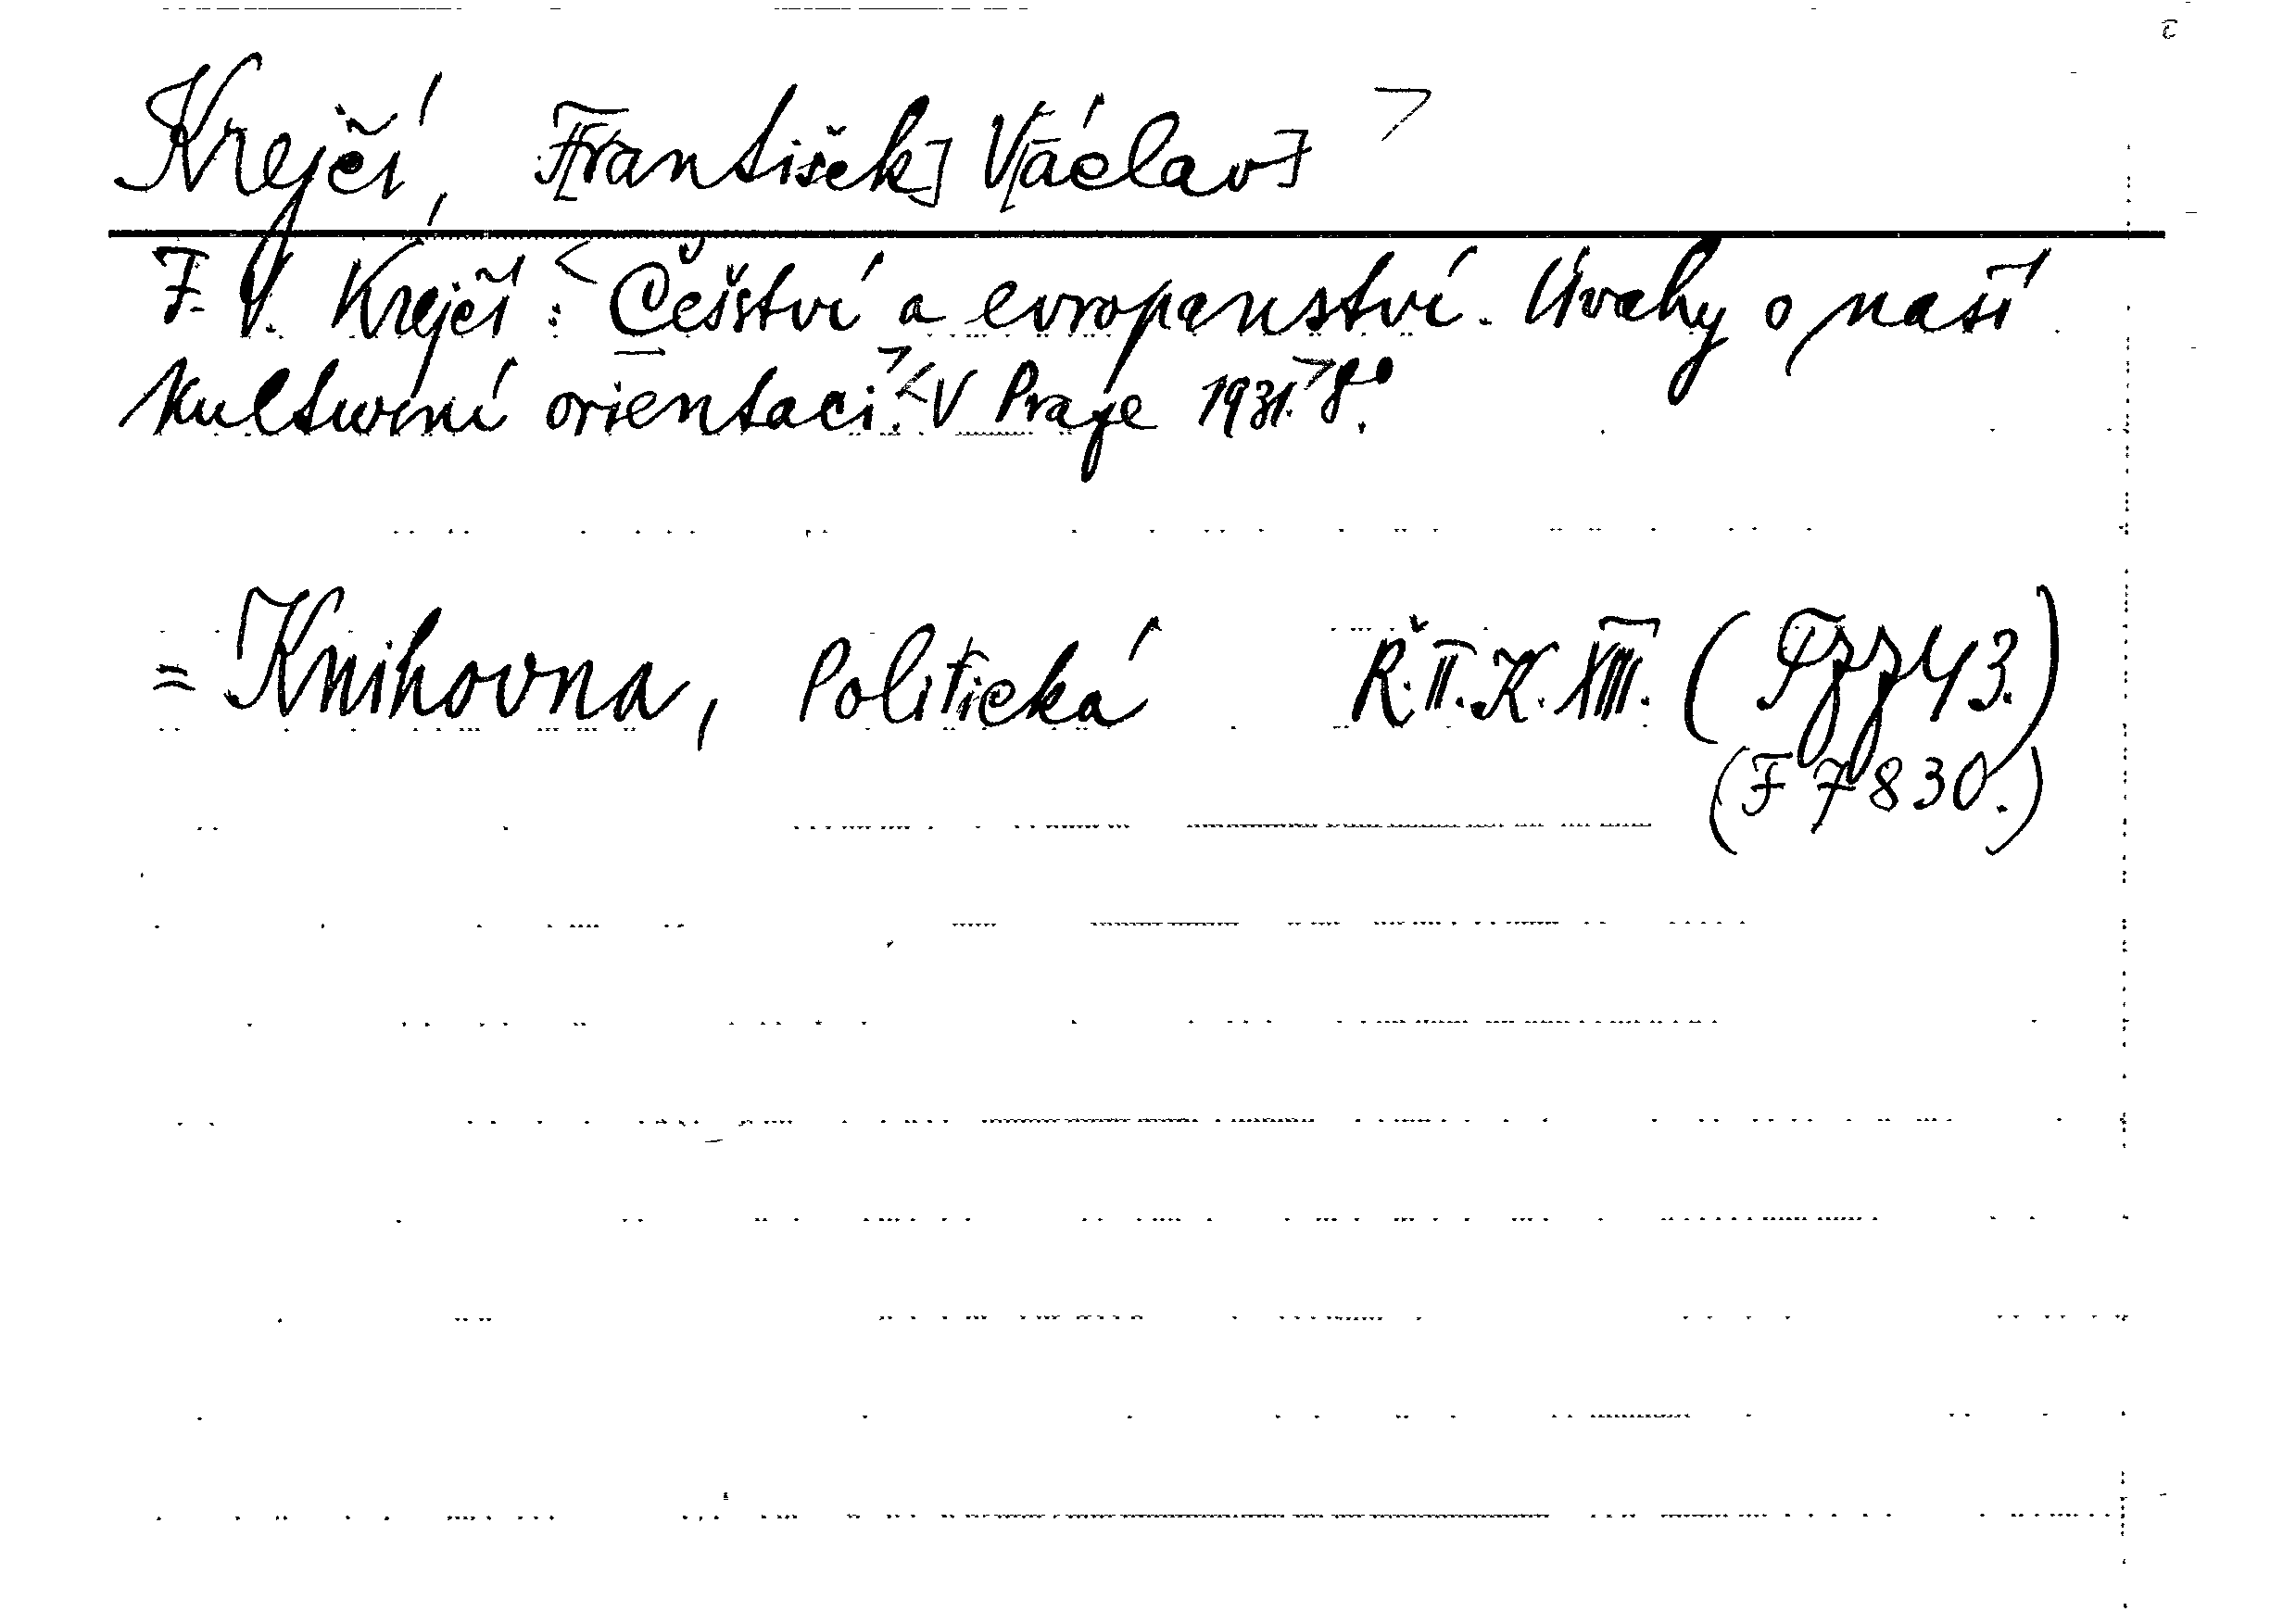 Krejčí, F[rantišek] V[áclav]>
F. V. Krejčí: <Češství a evropanství. Úvahy o naší
kulturní orientaci.> <V Praze 1931.> 8°.
= Knihovna, Politická Ř. II. K. XIII. (Fzz43.)
(F7830.)